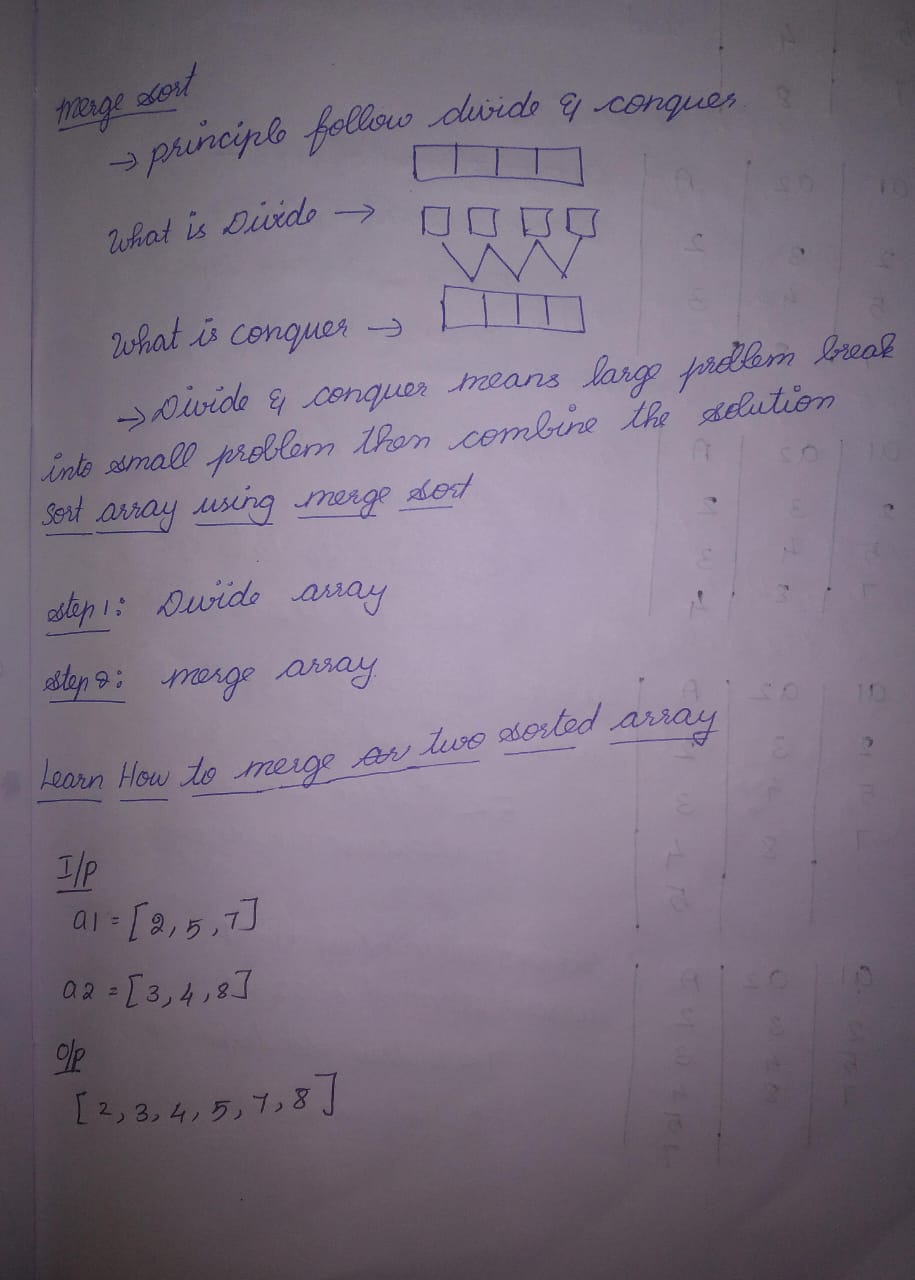 merge sort
→ principle follow divide & conquer
What is Divide →
What is conquer →
→ Divide & conquer means large problem break
into small problem then combine the solution
Sort array using merge sort
step 1: Divide array
step 2: merge array
Learn How to merge two sorted array
I/p
a1 = [2, 5, 7]
a2 = [3, 4, 8]
O/p
[2, 3, 4, 5, 7, 8]